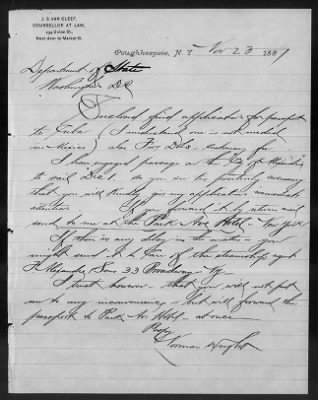 J. S. VAN CLEEF,
COUNSELLOR AT LAW,
Next door to Market St.
Poughkeepsie, N. Y. Nov 23 1887
Department of State
Washington D.C.
Enclosed find application for passport
to Cuba (I understand one is not needed
in Mexico) also Five Dols.
I have engaged passage on the City of
to sail Dec 1. As you see be
that you will kindly give my application immediate
attention. forward it by return mail
send to me at the Park Ave Hotel - New York
If there is any delay in the matter - you
might send it to care of the steamships agent
F. Alexandre & Sons 33 Broadway - NY
I trust however - that you will not put
me to any inconvenience - but will forward the
passport to Park Av Hotel - at once
Respy
Norman Wright